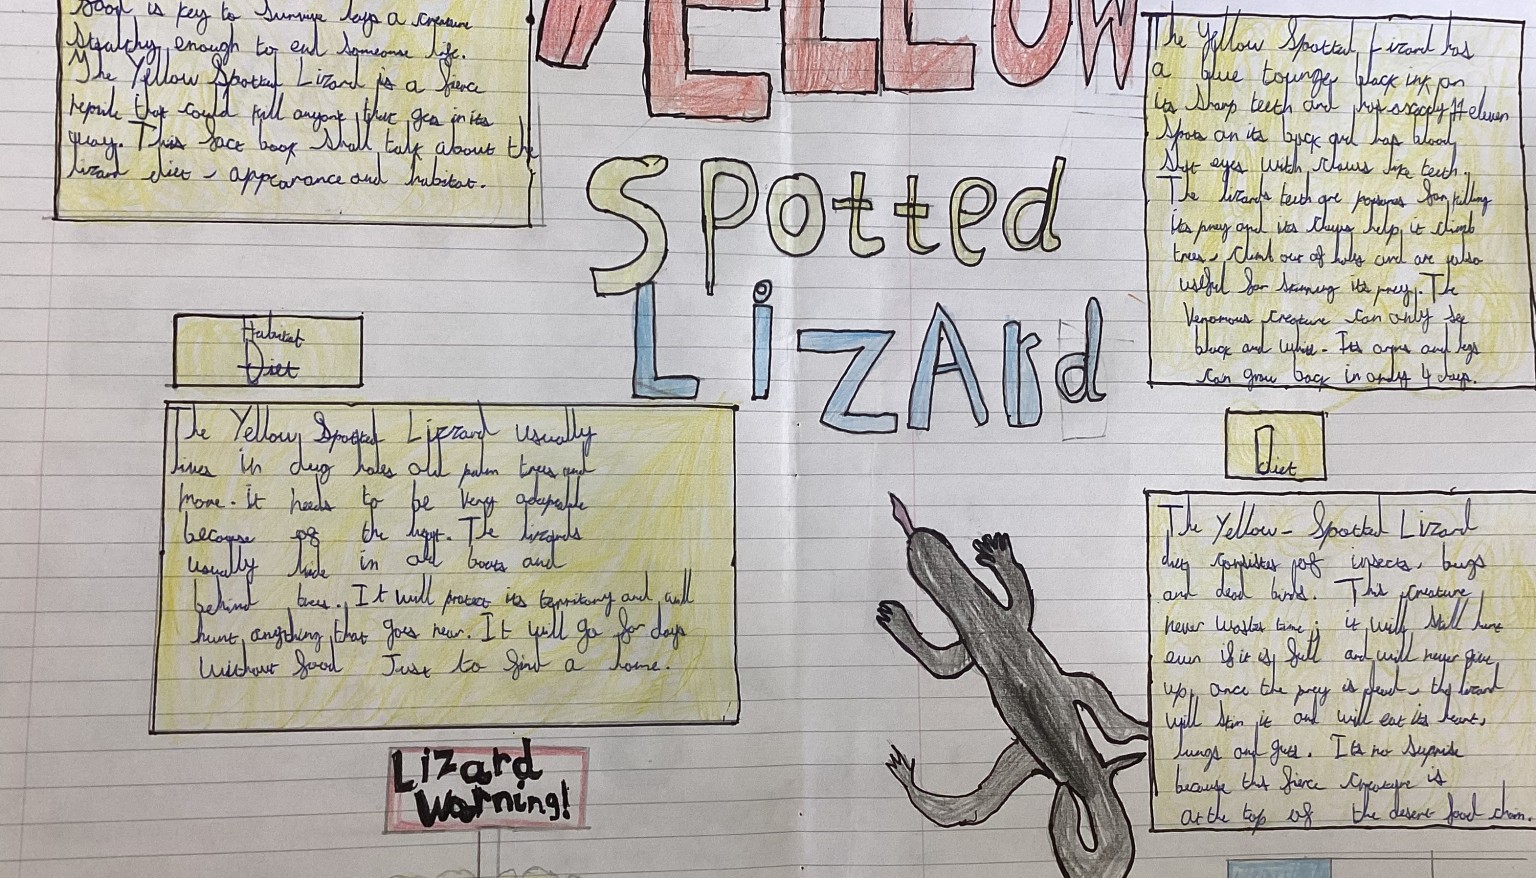 food is key to survive lays a creature
stealthy enough to end someone life.
The Yellow Spotted Lizard is a fierce
reptile that could kill anyone that goes in its
way. This fact book shall talk about the
lizard diet, appearance and habitat.
YELLOW
Spotted
LizARd
The Yellow Spotted Lizard has
a blue tounge black ink on
its sharp teeth and eleven
spots on its back and has blood
shot eyes with claws like teeth.
The lizards teeth are for killing
its prey and its claws help it climb
trees, climb out of holes and are also
useful for skinning its prey. The
Venomous creature can only see
black and white. Its arms and legs
can grow back in only 4 days.
Habitat
Diet
The Yellow Spotted Lizzard usually
lives in dug holes old palm trees and
more. it needs to be very adaptable
because of the. The lizards
usually hide in old boats and
behind trees. It will protect its territory and will
hunt anything that goes near. It will go for days
without food Just to find a home.
Diet
The Yellow-Spotted Lizard
diet consistes of insects, bugs
and dead birds. This creature
never wastes time; it will still hunt
even if it is full and will never give
up, once the prey is dead, the lizard
will skin it and will eat its heart,
lungs and guts. Its no suprise
because this fierce creature is
at the top of the desert food chain.
Lizard
Warning!